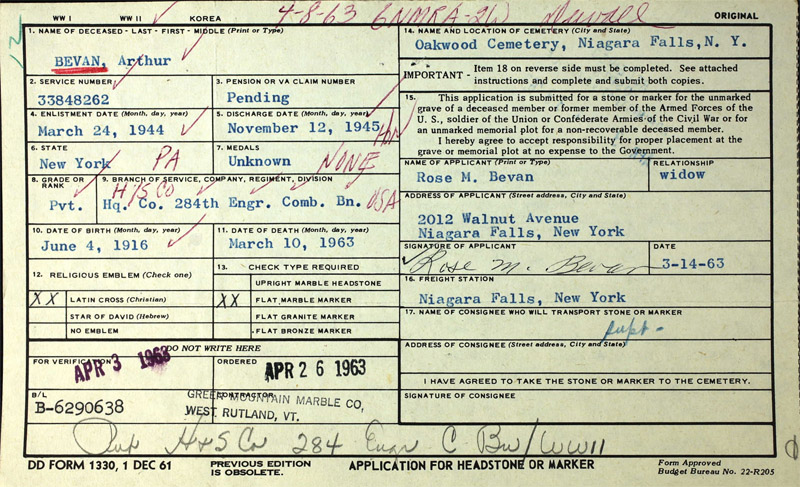 WW I WW II KOREA 4-8-63 ORIGINAL
1. NAME OF DECEASED - LAST - FIRST - MIDDLE (Print or Type)
BEVAN, Arthur
2. SERVICE NUMBER
33848262
3. PENSION OR VA CLAIM NUMBER
Pending
4. ENLISTMENT DATE (Month, day, year)
March 24, 1944
5. DISCHARGE DATE (Month, day, year)
November 12, 1945
Hon
6. STATE
New York PA
7. MEDALS
Unknown NONE
8. GRADE OR RANK
Pvt.
9. BRANCH OF SERVICE, COMPANY, REGIMENT, DIVISION
H/S Co
Hq. Co. 284th Engr. Comb. Bn. USA
10. DATE OF BIRTH (Month, day, year)
June 4, 1916
11. DATE OF DEATH (Month, day, year)
March 10, 1963
12. RELIGIOUS EMBLEM (Check one)
XX LATIN CROSS (Christian)
STAR OF DAVID (Hebrew)
NO EMBLEM
13. CHECK TYPE REQUIRED
UPRIGHT MARBLE HEADSTONE
XX FLAT MARBLE MARKER
FLAT GRANITE MARKER
FLAT BRONZE MARKER
DO NOT WRITE HERE
FOR VERIFICATION
APR 3 1963
ORDERED
APR 26 1963
B/L
B-6290638
CONTRACTOR
GREEN MOUNTAIN MARBLE CO,
WEST RUTLAND, VT.
14. NAME AND LOCATION OF CEMETERY (City and State)
Oakwood Cemetery, Niagara Falls, N. Y.
IMPORTANT - Item 18 on reverse side must be completed. See attached
instructions and complete and submit both copies.
15. This application is submitted for a stone or marker for the unmarked
grave of a deceased member or former member of the Armed Forces of the
U. S., soldier of the Union or Confederate Armies of the Civil War or for
an unmarked memorial plot for a non-recoverable deceased member.
I hereby agree to accept responsibility for proper placement at the
grave or memorial plot at no expense to the Government.
NAME OF APPLICANT (Print or Type)
Rose M. Bevan
RELATIONSHIP
widow
ADDRESS OF APPLICANT (Street address, City and State)
2012 Walnut Avenue
Niagara Falls, New York
SIGNATURE OF APPLICANT
Rose M. Bevan
DATE
3-14-63
16. FREIGHT STATION
Niagara Falls, New York
17. NAME OF CONSIGNEE WHO WILL TRANSPORT STONE OR MARKER
supt-
ADDRESS OF CONSIGNEE (Street address, City and State)
I HAVE AGREED TO TAKE THE STONE OR MARKER TO THE CEMETERY.
SIGNATURE OF CONSIGNEE
H+S Co 284 Engr C Bn/WWII
DD FORM 1330, 1 DEC 61 PREVIOUS EDITION IS OBSOLETE. APPLICATION FOR HEADSTONE OR MARKER Form Approved
Budget Bureau No. 22-R205